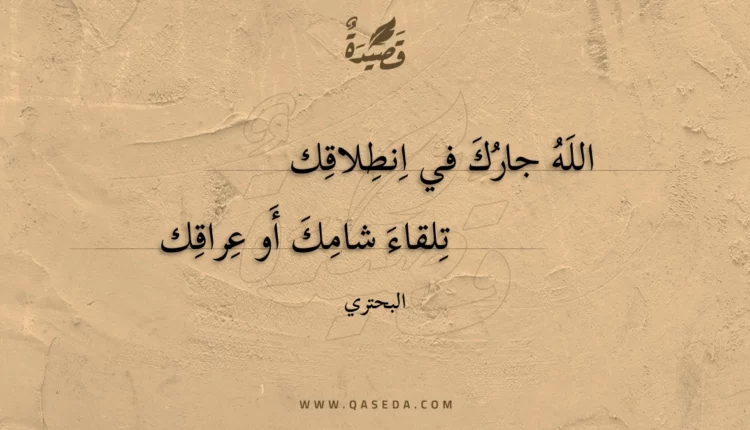 قَصِيْدَةٌ
اللَهُ جارُكَ في اِنطِلاقِك
تِلقاءَ شامِكَ أَو عِراقِك
البحتري
WWW.QASEDA.COM